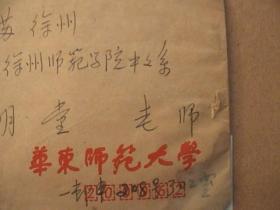 苏 徐州
徐州师范学院中文系
明 堂 老师
華東師範大學
200062